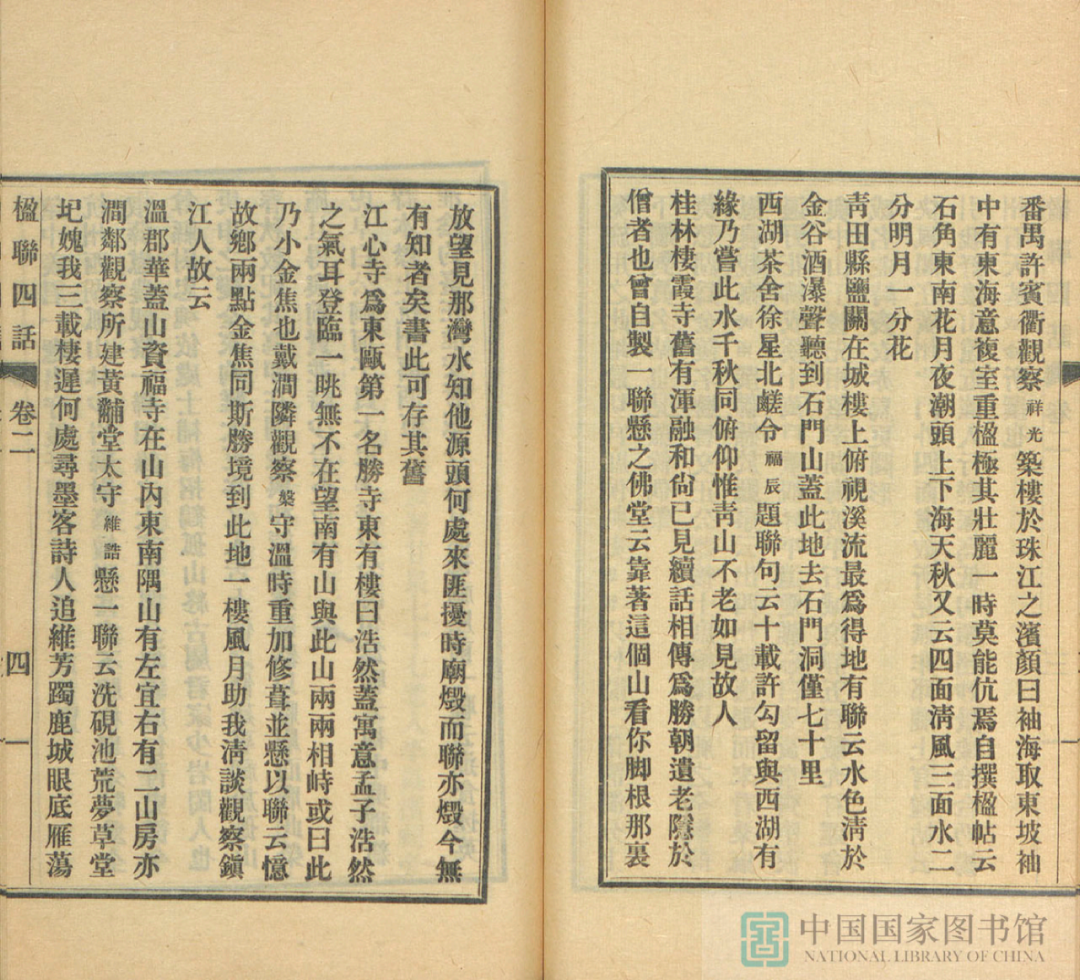 番禺許賓衢觀察祥光築樓於珠江之濱顏曰袖海取東坡袖
中有東海意複室重楹極其壯麗一時莫能伉焉自撰楹帖云
石角東南花月夜潮頭上下海天秋又云四面清風三面水二
分明月一分花
靑田縣鹽關在城樓上俯視溪流最爲得地有聯云水色淸於
金谷酒瀑聲聽到石門山蓋此地去石門洞僅七十里
西湖茶舍徐星北鹺令福辰題聯句云十載許勾留與西湖有
緣乃嘗此水千秋同俯仰惟靑山不老如見故人
桂林棲霞寺舊有渾融和尙已見續話相傳爲勝朝遺老隱於
僧者也曾自製一聯懸之佛堂云靠著這個山看你脚根那裏
放望見那灣水知他源頭何處來匪擾時廟燬而聯亦燬今無
有知者矣書此可存其舊
江心寺爲東甌第一名勝寺東有樓曰浩然蓋寓意孟子浩然
之氣耳登臨一眺無不在望南有山與此山兩兩相峙或曰此
乃小金焦也戴澗隣觀察槃守溫時重加修葺並懸以聯云憶
故鄉兩點金焦同斯勝境到此地一樓風月助我淸談觀察鎭
江人故云
溫郡華蓋山資福寺在山內東南隅山有左宜右有二山房亦
澗鄰觀察所建黃黼堂太守維誥懸一聯云洗硯池荒夢草堂
圮媿我三載棲遲何處尋墨客詩人追維芳躅鹿城眼底雁蕩
楹聯四話 卷二 四一
中国国家图书馆
NATIONAL LIBRARY OF CHINA